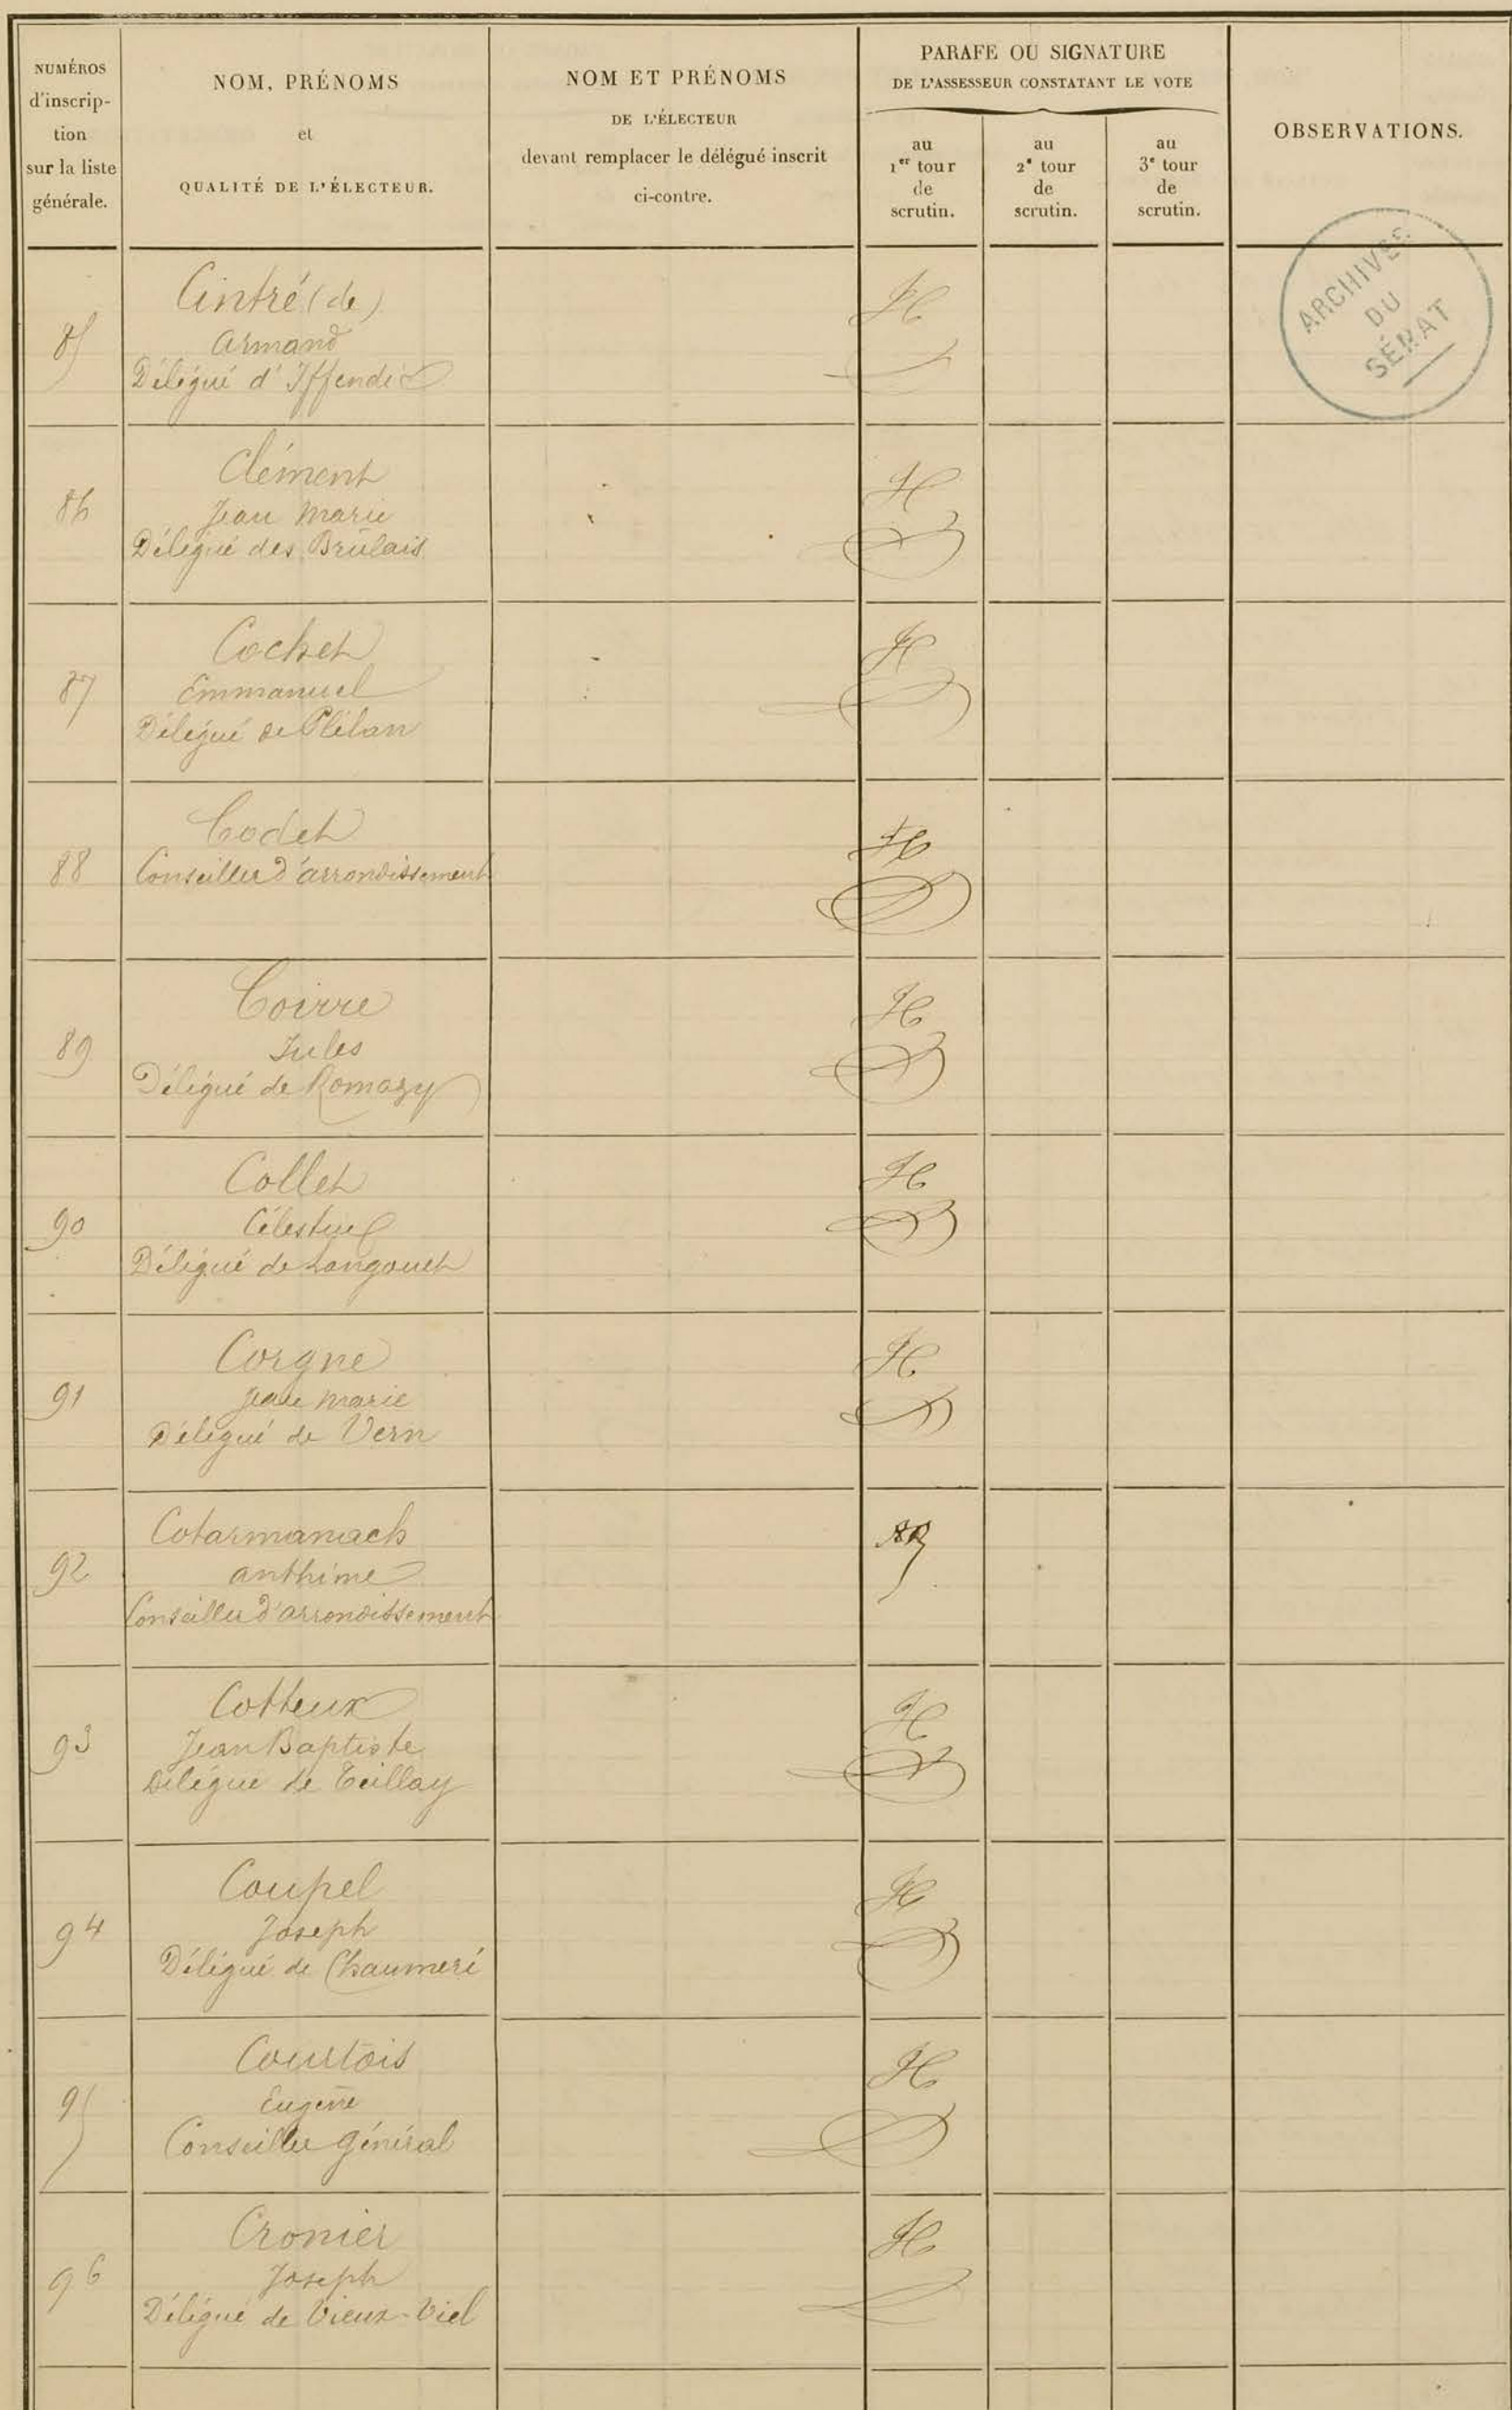 NUMÉROS
d'inscrip-
tion
sur la liste
générale.
NOM, PRÉNOMS
et
QUALITÉ DE L'ÉLECTEUR.
NOM ET PRÉNOMS
DE L'ÉLECTEUR
devant remplacer le délégué inscrit
ci-contre.
PARAFE OU SIGNATURE
DE L'ASSESSEUR CONSTATANT LE VOTE
au
1er tour
de
scrutin.
au
2e tour
de
scrutin.
au
3e tour
de
scrutin.
OBSERVATIONS.
ARCHIVES
DU
SÉNAT
85
Cintré (de)
Armand
Délégué d'Iffendic
86
Clément
Jean Marie
Délégué des Brûlais
87
Cochet
Emmanuel
Délégué de Plélan
88
Codet
Conseiller d'arrondissement
89
Coirre
Jules
Délégué de Romazy
90
Collet
Célestin
Délégué de Langouet
91
Corgne
Jean Marie
Délégué de Vern
92
Cotarmanach
Anthime
Conseiller d'arrondissement
93
Cotteux
Jean Baptiste
Délégué de Teillay
94
Coupel
Joseph
Délégué de Chaumeré
95
Courtois
Eugène
Conseiller Général
96
Cronier
Joseph
Délégué de Vieux-Viel